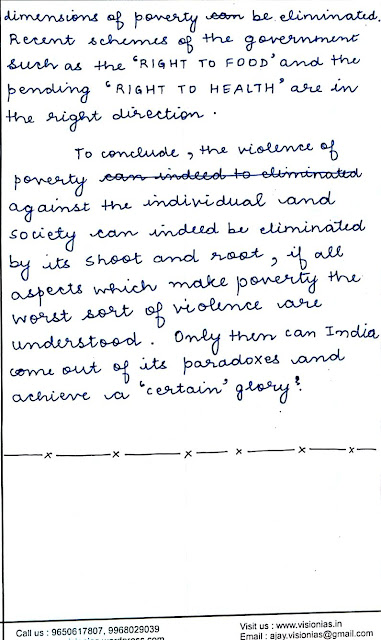 dimensions of poverty can be eliminated.
Recent schemes of the government
such as the 'RIGHT TO FOOD' and the
pending 'RIGHT TO HEALTH' are in
the right direction.
To conclude, the violence of
poverty can indeed to eliminated
against the individual and
society can indeed be eliminated
by its shoot and root, if all
aspects which make poverty the
worst sort of violence are
understood. Only then can India
come out of its paradoxes and
achieve a 'certain' glory!
x x x x x x
Call us : 9650617807, 9968029039
Visit us : www.visionias.in
Email : ajay.visionias@gmail.com